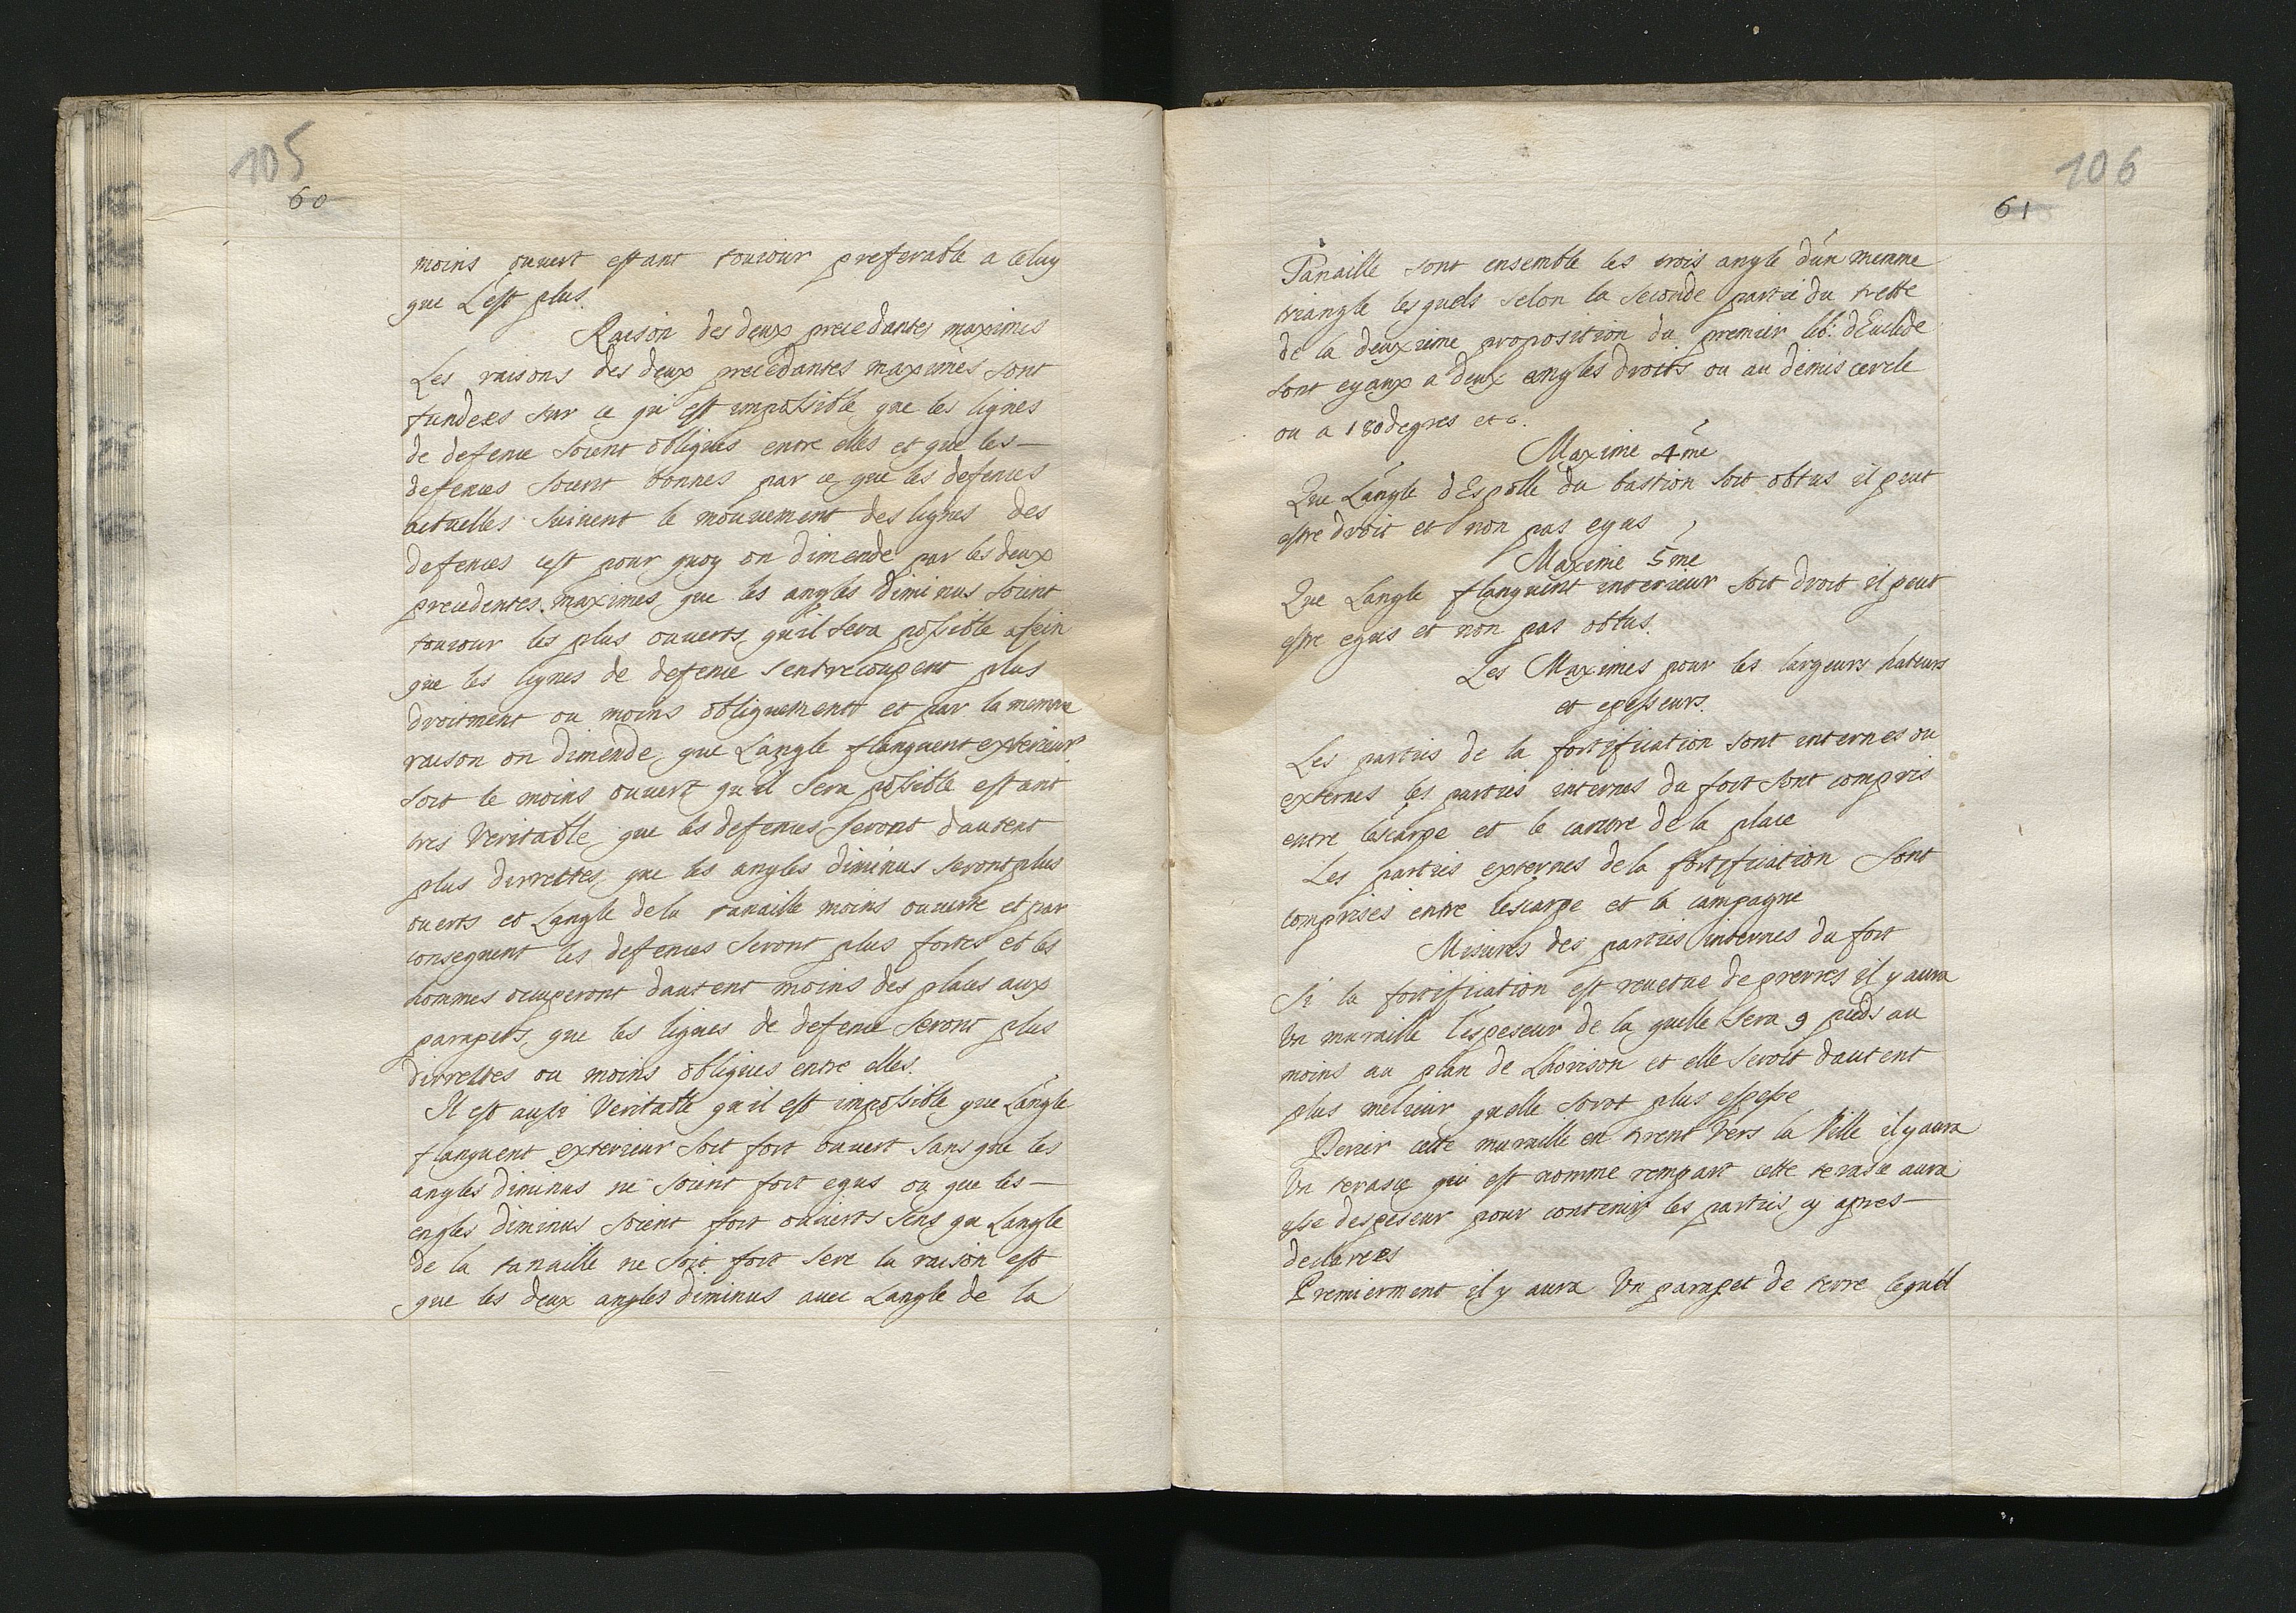 105
60
moins ouvert estant toujour preferable a celuy
que Lest plus.
Raison des deux precedantes maximes
Les raisons des deux precedantes maximes sont
fundees sur ce qu'est impossible que les lignes
de defence soient obliques entre elles et que les
defences soient bonnes par ce que les defences
actuelles suivent le mouvement des lignes des
defences cest pour quoy on dimende par les deux
precedentes maximes que les angles diminus soient
toujour les plus ouverts qu'il sera possible afein
que les lignes de defence sentrecoupent plus
droitment ou moins obliquement et par la memme
raison on dimende que Langle flanquent exterieur
soit le moins ouvert quil sera possible estant
tres veritable que les defences seront dautent
plus dirrettes que les angles diminus seront plus
ouerts et Langle de la tanaille moins ouverte et par
consequent les defences seront plus fortes et les
hommes ocuperont dautent moins des places aux
parapets que les lignes de defence seront plus
dirrettes ou moins obliques entre elles.
Il est aussi veritable quil est impossible que Langle
flanquent exterieur soit fort ouvert sans que les
angles diminus ne soient fort egus ou que les
engles diminus soient fort ouverts sens qu Langle
de la tanaille ne soit fort sere la raison est
que les deux angles diminus avec Langle de la
106
61
Tanaille sont ensemble les trois angle d'un memme
triangle les quels selon la seconde partie du trette
de la deuxieme proposition du premier lib: dEuclide
sont egaux a deux angles droits ou au demis cercle
ou a 180 degres etc.
Maxime 4me
Que Langle dEspolle du bastion soit obtus il peut
estre droit et non pas egus
Maxime 5me
Que Langle flanquent interieur soit droit il peut
estre egus et non pas obtus.
Les Maximes pour les largeurs hateurs
et epesseurs.
Les parties de la fortification sont internes ou
externes les parties internes du fort sont compris
entre lescarpe et le centre de la place
Les parties externes de la fortification sont
comprises entre lescarpe et la campagne
Misures des parties internes du fort
Si la fortification est revetue de pierres il y aura
Un muraille lespeseur de la quelle sera 9 pieds au
moins au plan de Lhorison et elle seroit dautent
plus melieur quelle seroit plus espesse
Derier cette muraille en tirent vers la Ville il y aura
Un terasse qui est nomme rempart cette terasse aura
asse despeseur pour contenir les parties cy apres
declarees
Premierment il y aura Un parapet de terre lequel